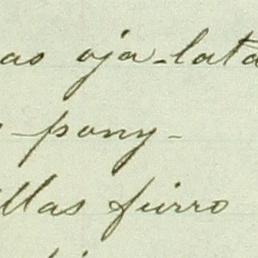 as oja-lata
pony-
llas fierro